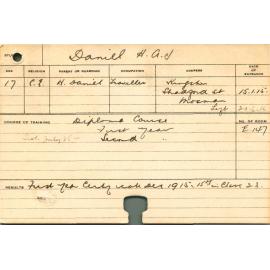 Daniel H. A. J
AGE RELIGION PARENT OR GUARDIAN OCCUPATION ADDRESS DATE OF ENTRANCE
17 C.E. H. Daniel Traveller Kingston
Shadforth St
Mosman 15.1.15
Left
COURSE OF TRAINING Diploma Course NO. OF ROOM
First Year E 147
Second "
RESULTS First Year Certif. Dec 1915. 15th in Class 23.